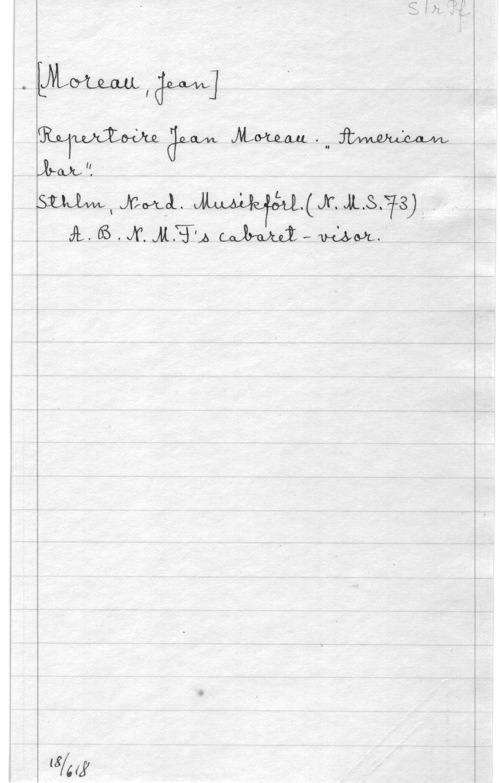 S1r Pf
[Moreau, Jean]
Repertoire Jean Moreau. „American
bar“.
Sthlm, Nord. Musikförl. (N.M.S.73)
A.B.N.M.F's cabaret-visor.
18/618